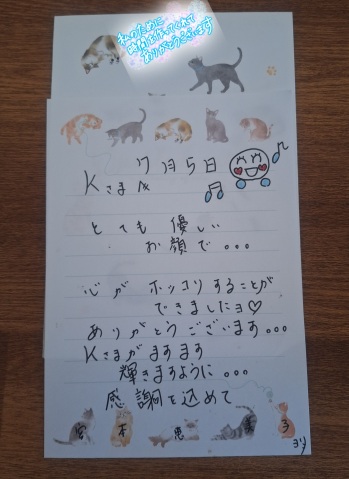 私のために
時間を作ってくれて
ありがとうございます
7月5日
Kさま
とても 優しい
お顔で...
心が ホッコリすることが
できましたヨ♡
ありがとうございます...
Kさまがますます
輝きますように...
感謝を込めて
宮本恵 子
ヨリ